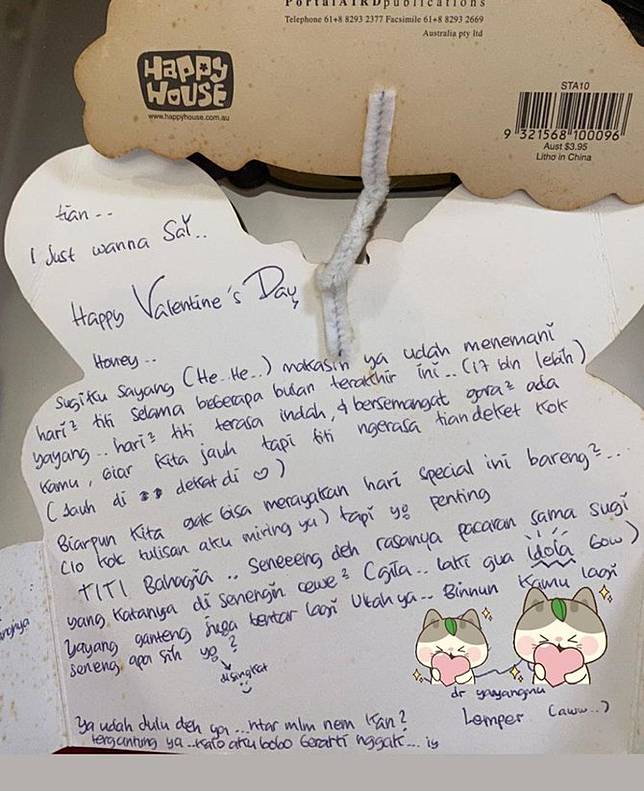 PortalAIRDpublications
Telephone 61+8 8293 2377 Facsimile 61+8 8293 2669
Australia pty ltd
Happy
House
www.happyhouse.com.au
STA10
9 321568 100096
Aust $3.95
Litho in China
tian - -
I Just wanna Say..
Happy Valentine's Day
Honey - .
Sugiku Sayang (He.. He..) makasih ya udah menemani
hari² titi selama beberapa bulan terakhir ini.. (17 bln lebih)
yayang.. hari² titi terasa indah, & bersemangat gara² ada
kamu, biar kita jauh tapi titi ngerasa tian deket kok
(Jauh di dekat di ♡)
Biarpun kita gak bisa merayakan hari special ini bareng²...
(lo kok tulisan aku miring ya) tapi yg penting
TITI Bahagia .. Seneeeng deh rasanya pacaran sama sugi
yang katanya di senengin cewe² (gila.. laki gua idola bow)
yayang ganteng juga bentar lagi Ultah ya.. Binnun kamu lagi
seneng apa sih yg ?
disingkat
dr yayangmu
Lemper (aww..)
Ya udah dulu deh yg ...ntar mlm nem kan?
tergantung ya..kalo aku bobo berarti nggak...